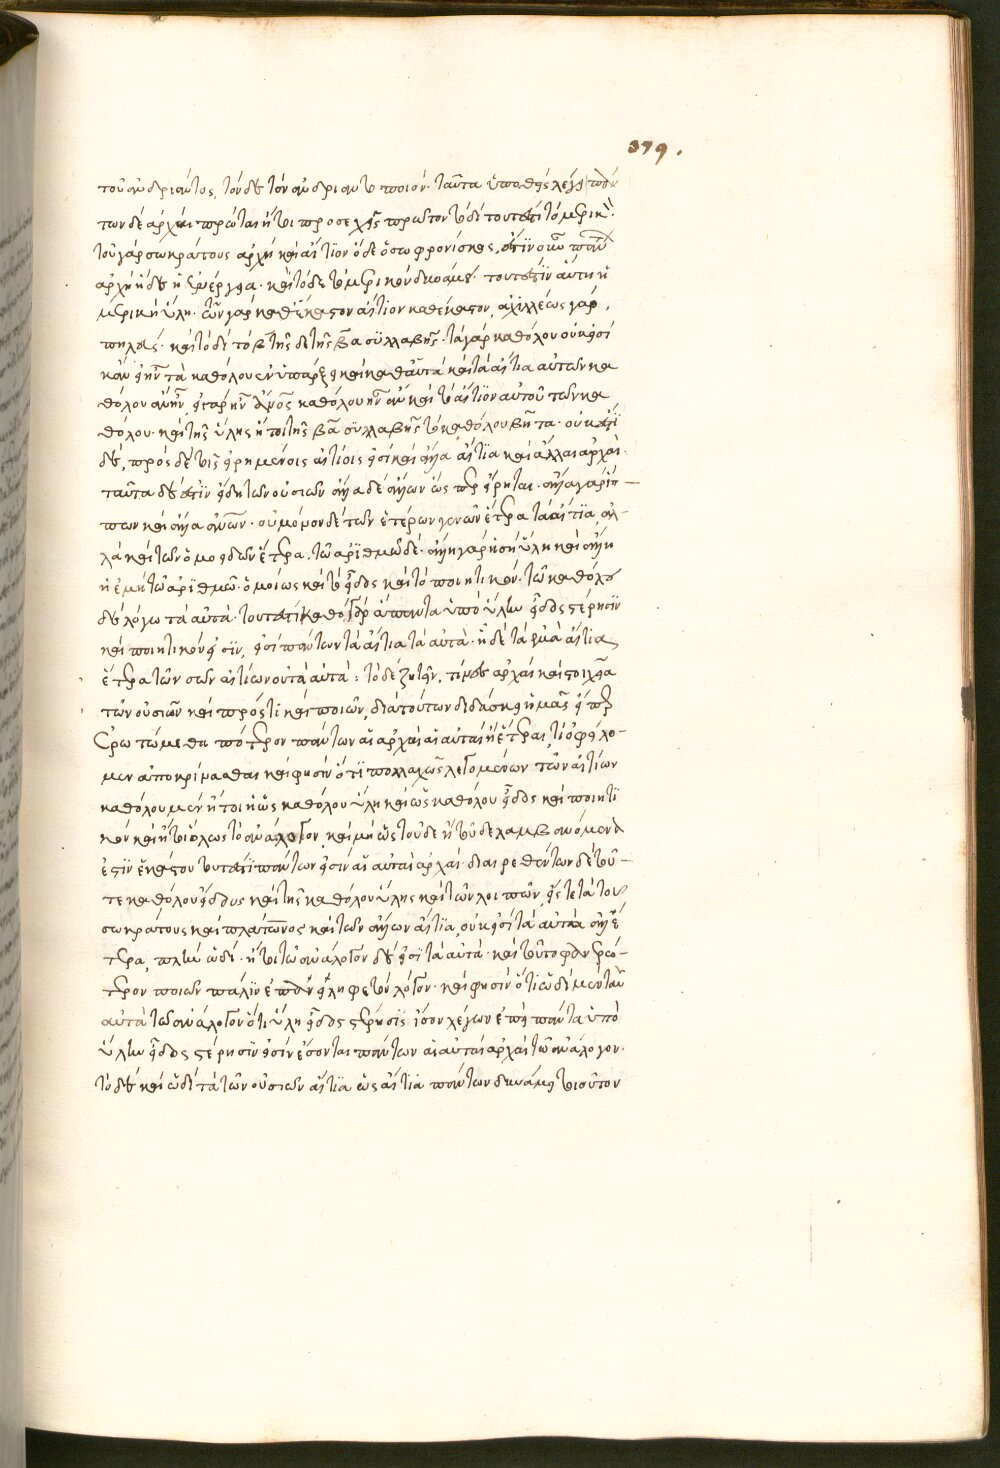 379.
τοῦ ἀνδριάντος, τὸν δὲ τὸν ἀνδριαντοποιόν· ταῦτα ὑποθεὶς λέγει πάν
των δὲ ἀρχαὶ πρῶται ἤτοι προσεχεῖς πρῶτον τοδὶ τουτέστι τὸ μερικόν·
τοῦ γὰρ σωκράτους ἀρχὴ καὶ αἴτιον ὅδε ὁ σωφρονίσκος,
ἀρχὴ ἥδε ἡ ἐνέργεια· καὶ τόδε τὸ μερικὸν δυνάμει· τουτέστιν αὕτη ἡ
μερικὴ ὕλη· τῶν γὰρ καθέκαστον αἴτιον καθέκαστον, ἀχιλλέως γὰρ
πηλεύς· καὶ τοδὶ τὸ β τῆς δε τῆς βα συλλαβῆς· τὰ γὰρ καθόλου οὐκ εἰσί
κἂν εἰ ἦν τὰ καθόλου ἐν ὑπάρξει καὶ καθ' αὑτὰ καὶ τὰ αἴτια αὐτῶν κα
θόλου ἂν ἦν, εἰ γὰρ ἦν ἄνος καθόλου ἦν ἂν καὶ τὸ αἴτιον αὐτοῦ τῶν κα
θόλου· καὶ τῆς ὕλης ἤτοι τῆς βα συλλαβῆς τὸ καθόλου βῆτα· οὐκ ἔστι
δὲ, πρὸς δὲ τοῖς εἰρημένοις αἰτίοις εἰσὶ καὶ ἄλλα αἴτια καὶ ἄλλαι ἀρχαί·
ταῦτα δὲ ἐστὶν εἴδη τῶν οὐσιῶν ἄλλα δὲ ἄλλων ὡς περ εἴρηται· ἄλλα γὰρ ἵπ
πων καὶ ἄλλα ἀνῶν· οὐ μόνον δὲ τῶν ἑτέρων γενῶν ἕτερα τὰ αἴτια, ἀλ
λὰ καὶ τῶν ὁμοειδῶν ἕτερα· τῷ ἀριθμῷ δέ· ἄλλη γὰρ ἡ σὴ ὕλη καὶ ἄλλη
ἡ ἐμὴ τῷ ἀριθμῷ· ὁμοίως καὶ τὸ εἶδος καὶ τὸ ποιητικόν· τῷ καθόλου
δὲ λόγῳ τὰ αὐτά· τουτέστι καθὸ γὰρ ἅπαντα ὑπὸ ὕλην εἶδος στέρησιν
καὶ ποιητικόν εἰσιν, εἰσὶ πάντων τὰ αἴτια τὰ αὐτά· ᾗ δὲ τὰ ἐμὰ αἴτια
ἕτερα τῶν σῶν αἰτίων οὐ τὰ αὐτά: τὸ δὲ ζητεῖν, τίνες ἀρχαὶ καὶ στοιχεῖα
τῶν οὐσιῶν καὶ πρός τι καὶ ποιῶν, διὰ τούτων διδάσκει ἡμᾶς εἴ περ
Ἐρωτώμεθα πότερον πάντων αἱ ἀρχαὶ αἱ αὐταὶ ἢ ἕτεραι, τί ὀφείλο
μεν ἀποκρίνασθαι καὶ φησὶν ὅτι πολλαχῶς λεγομένων τῶν αἰτίων
καθόλου μὲν ἤτοι ἡ ὡς καθόλου ὕλη καὶ ὡς καθόλου εἶδος καὶ ποιητι
κὸν καὶ ἤτοι ὅλως τὸ ἀνάλογον, καὶ μὴ ὡς τοῦδε ἢ τοῦδε λαμβανόμενα
ἐστὶν ἑκάστου τουτέστι πάντων εἰσὶν αἱ αὐταὶ ἀρχαί· διαιρεθέντων δὲ τοῦ
τε καθόλου εἴδους καὶ τῆς καθόλου ὕλης καὶ τῶν λοιπῶν, εἴς τε τὰ τοῦ
σωκράτους καὶ πλάτωνος καὶ τῶν ἄλλων αἴτια, οὐκ εἰσὶ τὰ αὐτὰ ἀλλ' ἕ
τερα, πλὴν ὡδί· ἤτοι τῷ ἀνάλογον δὲ εἰσὶ τὰ αὐτά· καὶ τοῦτο φανερώ
τερον ποιῶν πάλιν ἐπανείληφε τὸν λόγον· καὶ φησὶν ὅτι ὡδὶ μὲν ταὐ
αὐτὰ τῷ ἀνάλογον ὅτι ὕλη εἶδος στέρησις, ἴσον λέγων ἐπεὶ πάντα ὑπὸ
ὕλην εἶδος στέρησιν εἰσὶν ἔσονται πάντων αἱ αὐταὶ ἀρχαὶ τῷ ἀνάλογον·
τὸ δὲ καὶ ὡδὶ τὰ τῶν οὐσιῶν αἴτια ὡς αἴτια πάντων δυνάμει τοιοῦτον